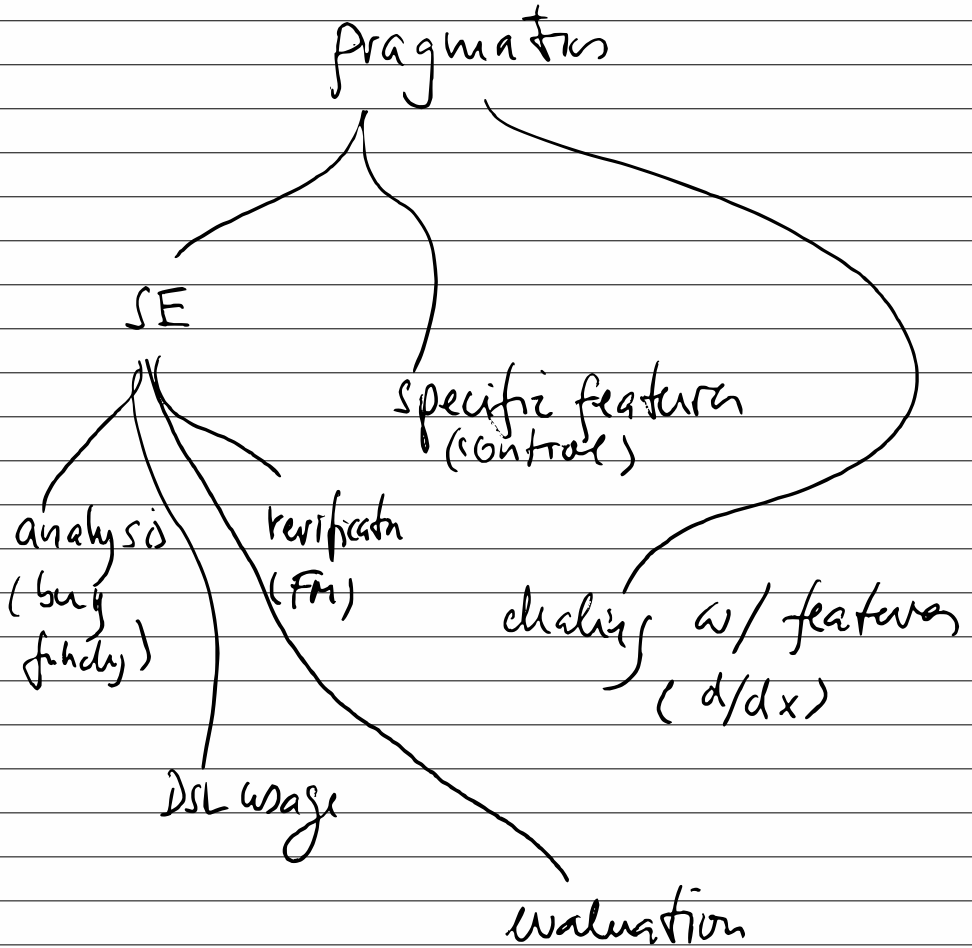 pragmatics
SE
specific features
(control)
analysis
(bug
finding)
verification
(FM)
dealing w/ features
(d/dx)
DSL usage
evaluation